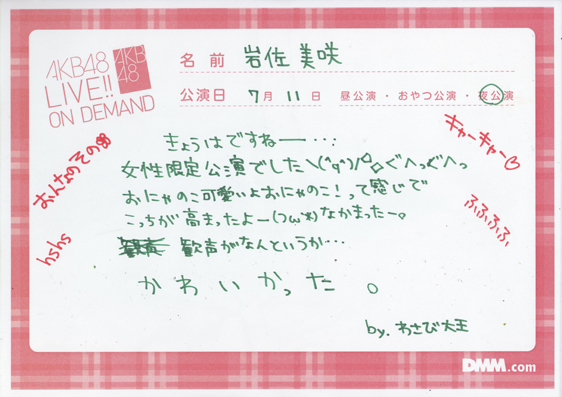 AKB48
LIVE!!
ON DEMAND
AKB
48
名前 岩佐美咲
公演日 7月11日 昼公演・おやつ公演・夜公演
きょうはですねー…
女性限定公演でした\(°q°)/ぐへっぐへっ
おにゃのこ可愛いよおにゃのこ!って感じで
こっちが高まったよー(つω*)なかまったー。
歓声がなんというか…
かわいかった。
by.わさび大王
おんなのその
hshs
キャーキャー♡
ふふふふ
DMM.com